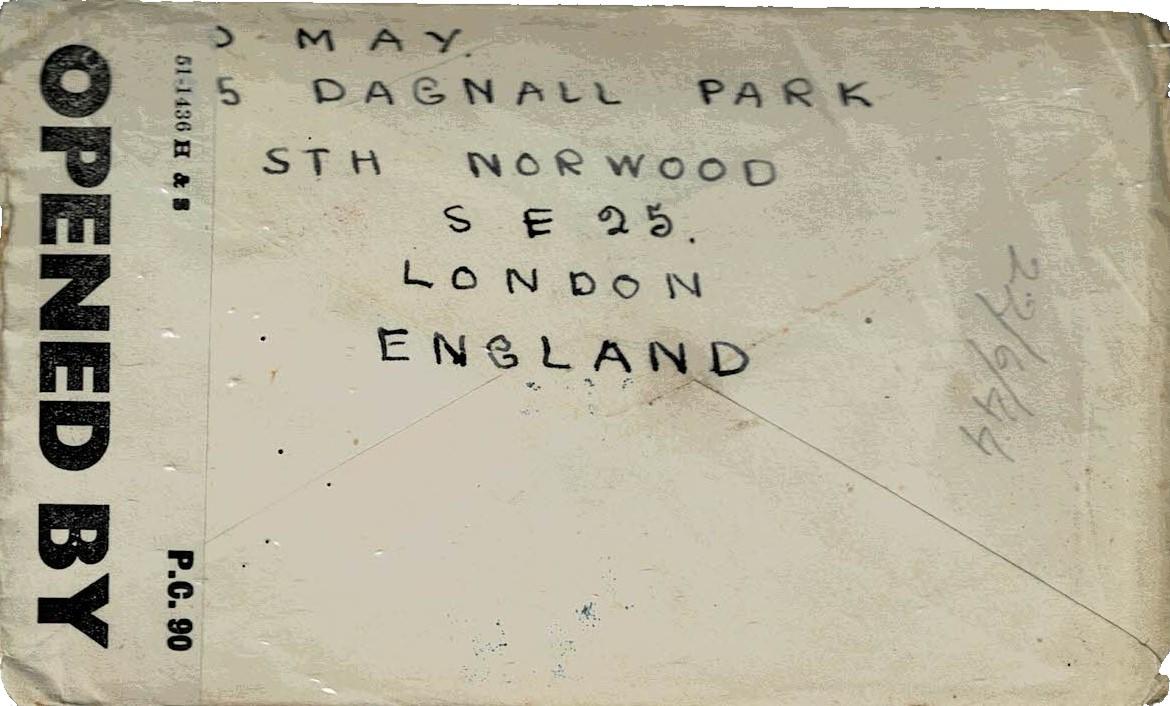 MAY.
5 DAGNALL PARK
STH NORWOOD
S E 25.
LONDON
ENGLAND
OPENED BY
51-1436 H & S
P.C. 90